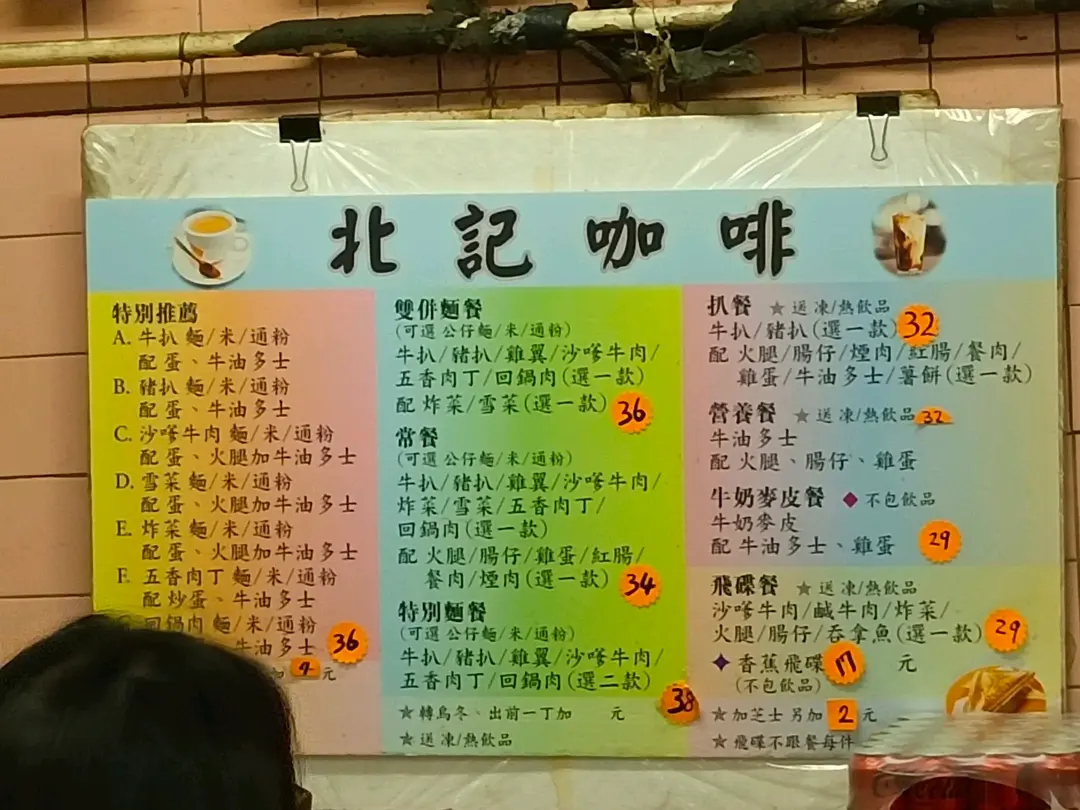 北記咖啡
特別推薦
A. 牛扒 麵/米/通粉
配 蛋、牛油多士
B. 豬扒 麵/米/通粉
配 蛋、牛油多士
C. 沙嗲牛肉 麵/米/通粉
配 蛋、火腿加牛油多士
D. 雪菜 麵/米/通粉
配 蛋、火腿加牛油多士
E. 炸菜 麵/米/通粉
配 蛋、火腿加牛油多士
F. 五香肉丁 麵/米/通粉
配炒蛋、牛油多士
回鍋肉 麵/米/通粉
牛油多士 36
加 元
雙併麵餐
(可選 公仔麵/米/通粉)
牛扒/豬扒/雞翼/沙嗲牛肉/
五香肉丁/回鍋肉(選一款)
配 炸菜/雪菜(選一款) 36
常餐
(可選 公仔麵/米/通粉)
牛扒/豬扒/雞翼/沙嗲牛肉/
炸菜/雪菜/五香肉丁/
回鍋肉(選一款)
配 火腿/腸仔/雞蛋/紅腸/
餐肉/煙肉(選一款) 34
特別麵餐
(可選 公仔麵/米/通粉)
牛扒/豬扒/雞翼/沙嗲牛肉/
五香肉丁/回鍋肉(選二款) 38
☆轉烏冬、出前一丁加 元
☆送 凍/熱飲品
扒餐 ☆送 凍/熱飲品
牛扒/豬扒(選一款) 32
配 火腿/腸仔/煙肉/紅腸/餐肉/
雞蛋/牛油多士/薯餅(選一款)
營養餐 ☆送 凍/熱飲品 32
牛油多士
配 火腿、腸仔、雞蛋
牛奶麥皮餐 ◆不包飲品
牛奶麥皮
配 牛油多士、雞蛋 29
飛碟餐 ☆送 凍/熱飲品
沙嗲牛肉/鹹牛肉/炸菜/
火腿/腸仔/吞拿魚(選一款) 29
✦香蕉飛碟 17 元
(不包飲品)
☆加芝士另加 2 元
☆飛碟不跟餐每件